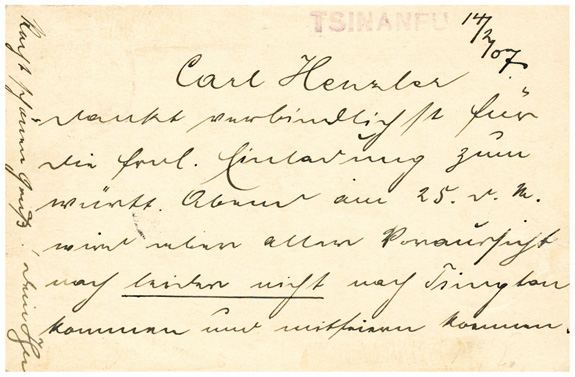 TSINANFU
14/2/07.
Carl Henzler
dankt verbindlichst für
die frdl. Einladung zum
württ. Abend am 25. d. M.
wird aber aller Voraussicht
nach leider nicht nach Tsingtau
kommen und mitfeiern koennen.
schönen Gruß